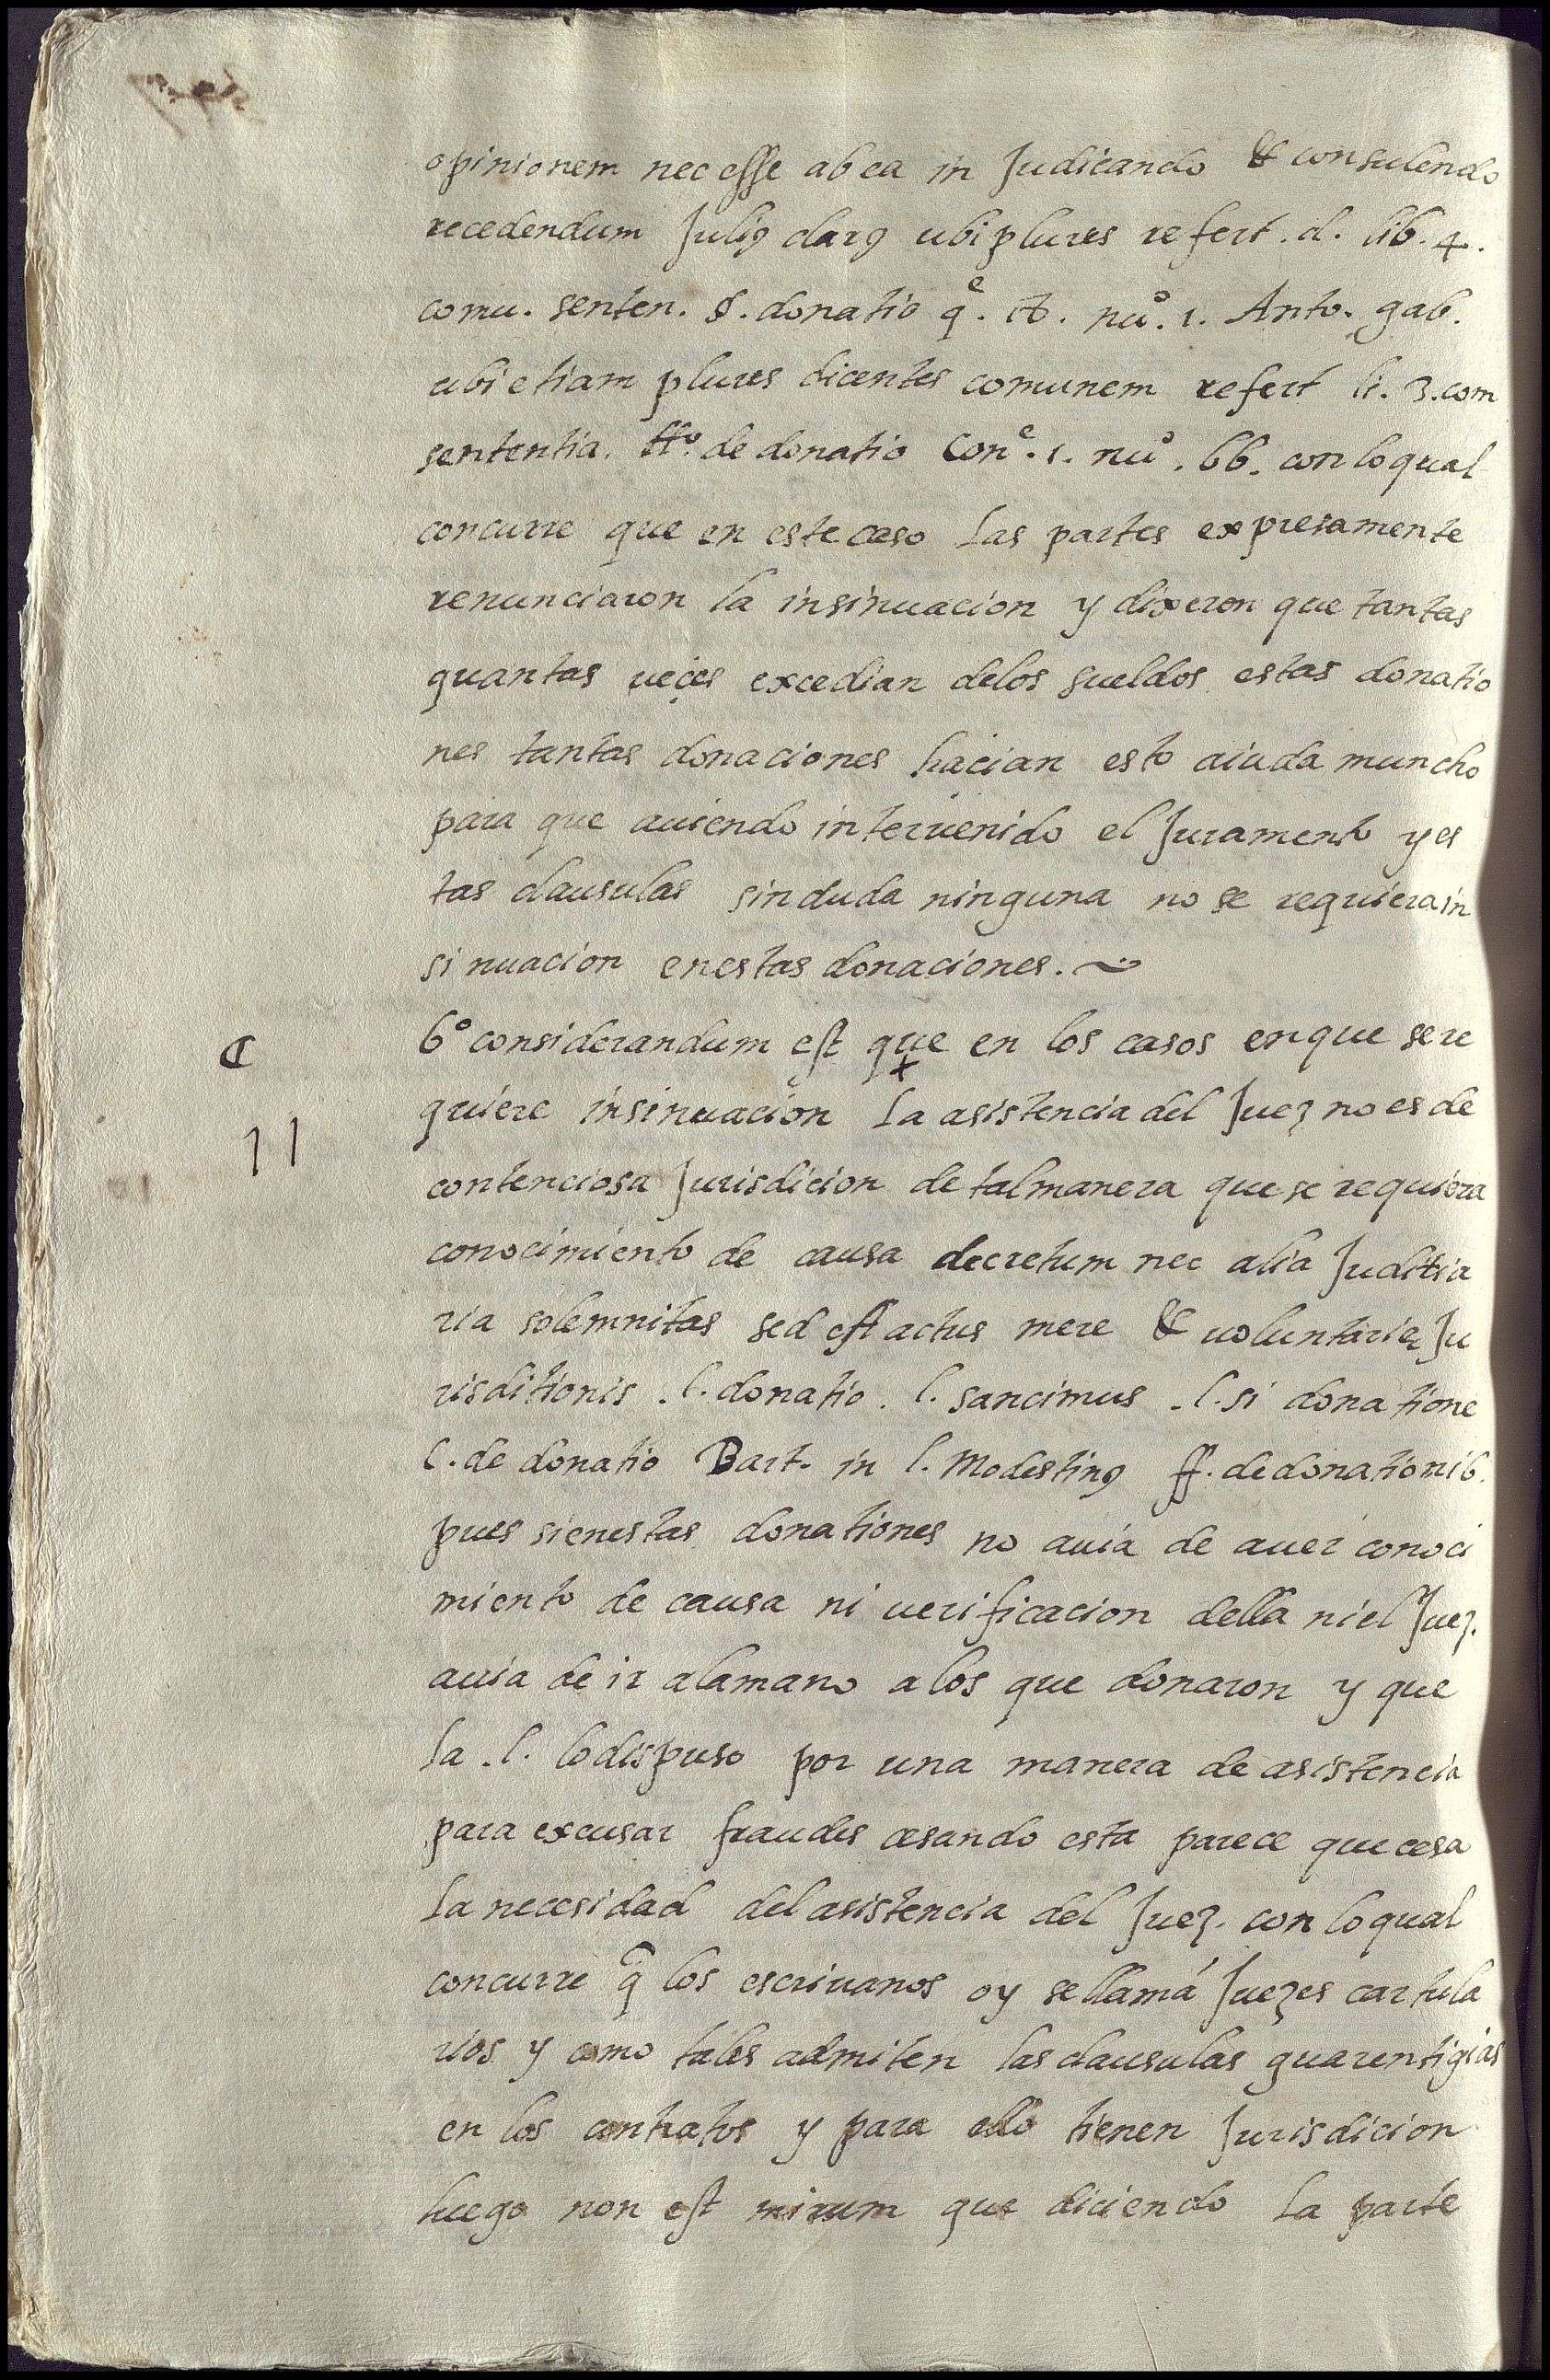 opinionem nec esse ab ea in Judicando & consulendo
recedendum Juliꝯ clarꝯ ubi plures refert. d. lib. 4.
comu. senten. §. donatio qᵉ. nuº. 1. Anto. gab.
ubi etiam plures dicentes comunem refert li. 3. com
sententia. ttº. de donatio Conᵉ. 1. nuº. 66. con lo qual
concurre que en este caso las partes expresamente
renunciaron la insinuacion y dixeron que tantas
quantas ueçes excedian de los sueldos estas donatio
nes tantas donaciones haçian esto aiuda muncho
para que auiendo interuenido el Juramento y es
tas clausulas sin duda ninguna no se requiera in
sinuacion en estas donaciones.
C
6º considerandum est que en los casos en que se re
quiere insinuacion la asistencia del Juez no es de
11
contenciosa Jurisdicion de tal manera que se requiera
conocimiento de causa decretum nec alia Juditia
ria solemnitas sed est actus mere & uoluntarię Ju
risditionis. l. donatio. l. sancimus. l. si donatione
C. de donatio Bart. in l. Modestinꝯ ff. de donationib.
pues si en estas donationes no auia de auer conoci
miento de causa ni uerificacion della ni el Juez.
auia de ir a la mano a los que donaron y que
la .l. lo dispuso por una manera de asistencia
para excusar fraudes cesando esta parece que cesa
la necesidad del asistencia del Juez. con lo qual
concurre q̃ los escriuanos oy se llamã Juezes cartula
rios y como tales admiten las clausulas guarentigias
en los contratos y para ello tienen Jurisdicion
luego non est mirum que diciendo la parte